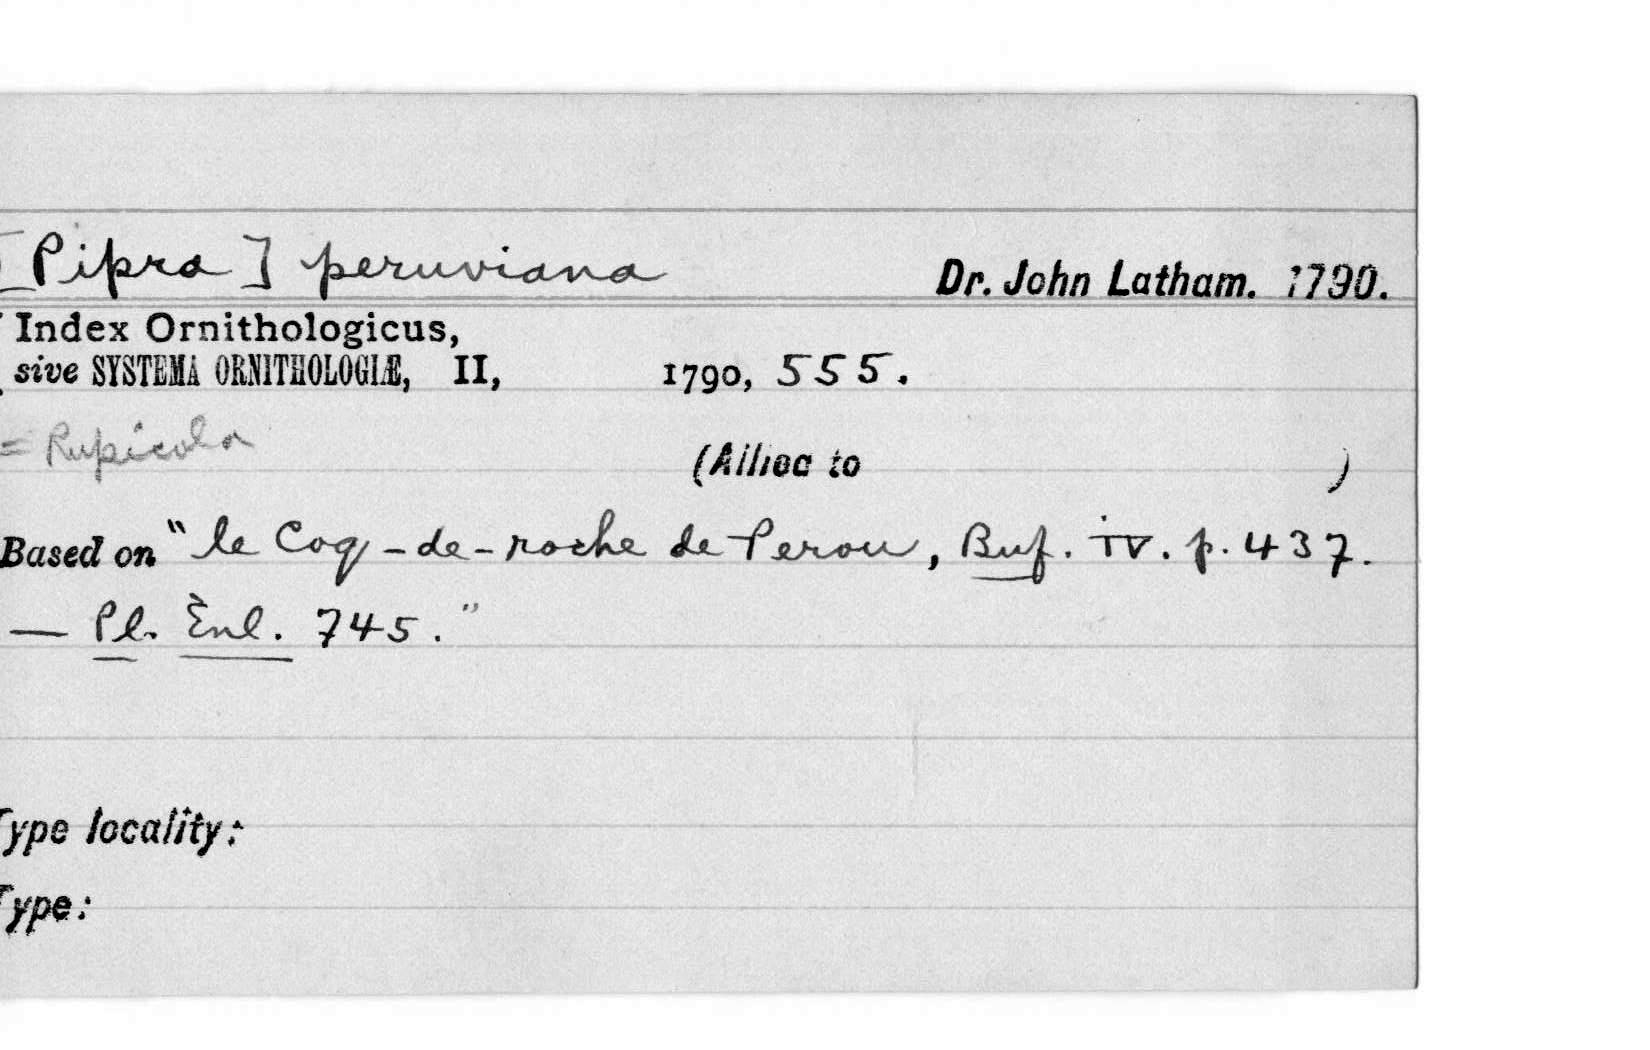 [Pipra] peruviana Dr. John Latham. 1790.
Index Ornithologicus,
sive SYSTEMA ORNITHOLOGIÆ, II, 1790, 555.
= Rupicola (Allied to )
Based on "le Coq-de-roche de Perou, Buf. iv. p. 437.
— Pl. Enl. 745."
Type locality:
Type: